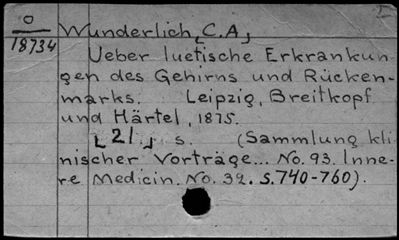 I
0
18734
Wunderlich, [C.A]
Ueber luetische Erkrankun-
gen des Gehirns und Rücken-
marks. Leipzig, Breitkopf
und Härtel, 1875.
[21] s. (Sammlung kli-
nischer Vorträge... No. 93. Inne-
re Medicin. No. 32. S.740-760).